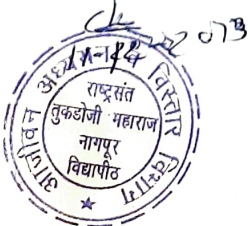 073
आजीवन अध्ययन व विस्तार विभाग
राष्ट्रसंत
तुकडोजी महाराज
नागपूर
विद्यापीठ